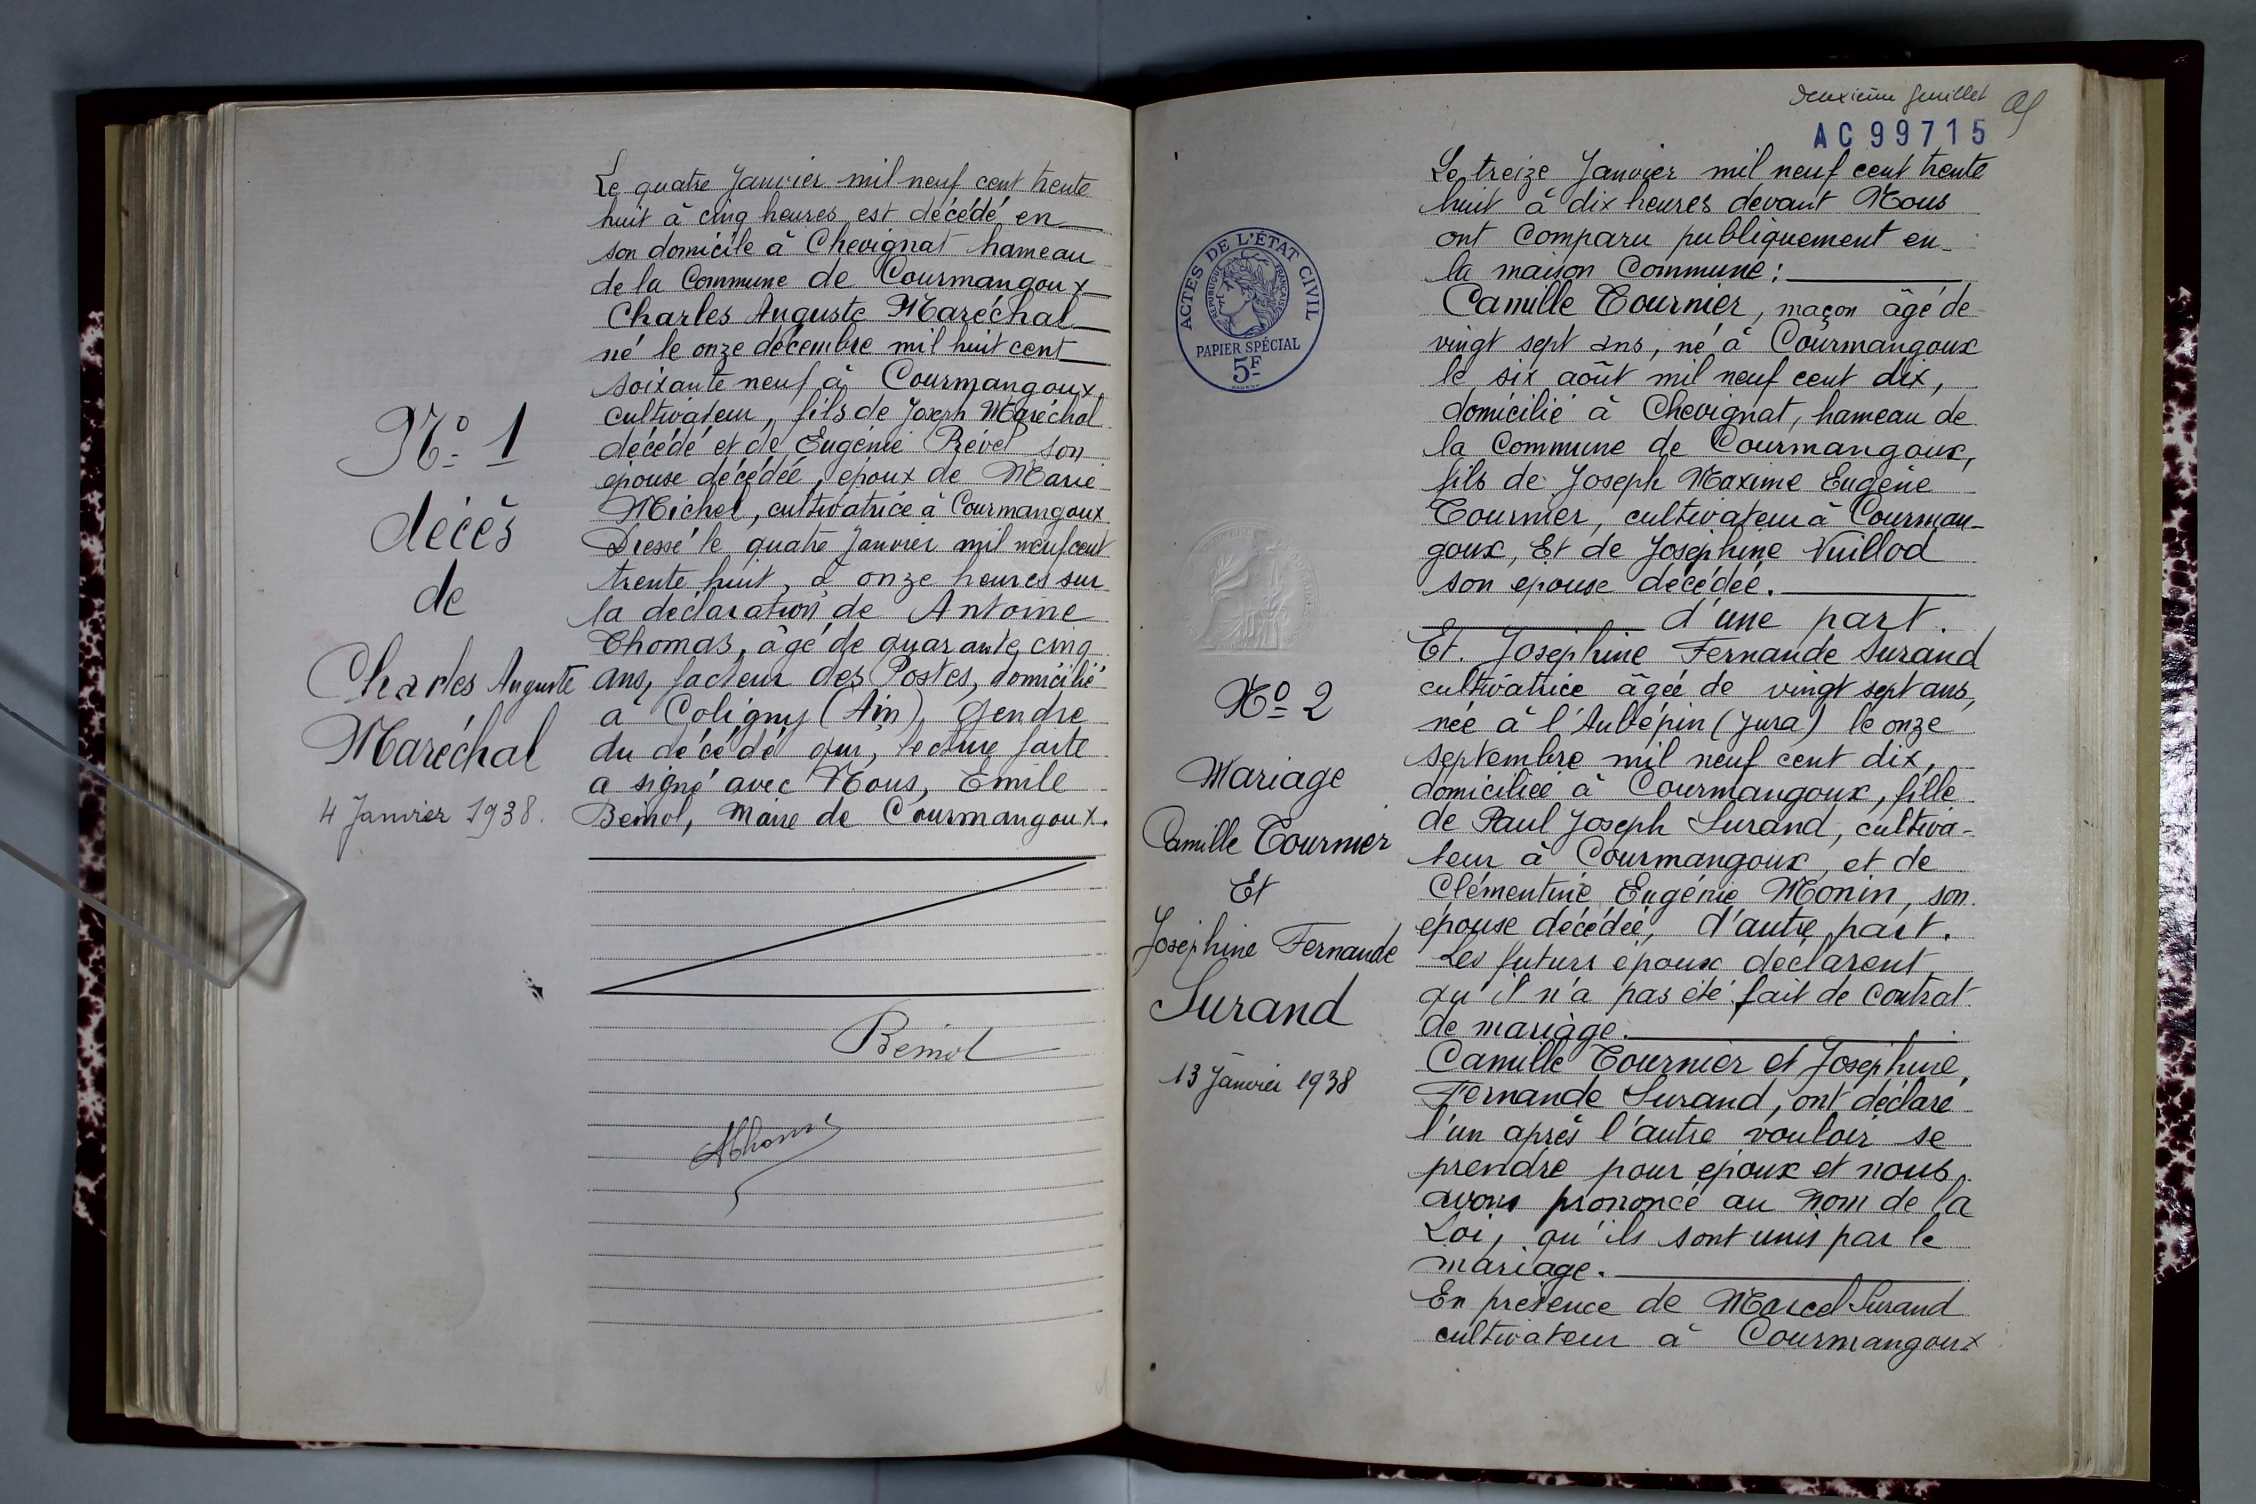 Le quatre Janvier mil neuf cent trente
huit à cinq heures est décédé en
son domicile à Chevignat hameau
de la Commune de Courmangoux
Charles Auguste Maréchal
né le onze décembre mil huit cent
soixante neuf à Courmangoux
cultivateur, fils de Joseph Maréchal
décédé et de Eugénie Rével son
épouse décédée, époux de Marie
Michel, cultivatrice à Courmangoux
Dressé le quatre Janvier mil neuf cent
trente huit, à onze heures sur
la déclaration de Antoine
Thomas, âgé de quarante cinq
ans, facteur des Postes, domicilié
à Coligny (Ain), gendre
du décédé qui, lecture faite
a signé avec Nous, Emile
Bémol, Maire de Courmangoux.
Bémol
AThomas
No 1
décès
de
Charles Auguste
Maréchal
4 Janvier 1938.
deuxième feuillet
AC 99715
ACTES DE L'ÉTAT CIVIL
RÉPUBLIQUE FRANÇAISE
PAPIER SPÉCIAL
5F
No 2
Mariage
Camille Tournier
Et
Joséphine Fernande
Surand
13 Janvier 1938
Le treize Janvier mil neuf cent trente
huit à dix heures devant Nous
ont comparu publiquement en
la maison Commune :
Camille Tournier, maçon âgé de
vingt sept ans, né à Courmangoux
le six août mil neuf cent dix,
domicilié à Chevignat, hameau de
la Commune de Courmangoux,
fils de Joseph Maxime Eugène
Tournier, cultivateur à Courman-
goux, Et de Joséphine Vuillod
son épouse décédée.
d'une part.
Et. Joséphine Fernande Surand
cultivatrice âgée de vingt sept ans,
née à l'Aubépin (Jura) le onze
septembre mil neuf cent dix,
domiciliée à Courmangoux, fille
de Paul Joseph Surand, cultiva-
teur à Courmangoux, et de
Clémentine Eugénie Monin, son
épouse décédée, d'autre part.
Les futurs époux déclarent
qu'il n'a pas été fait de contrat
de mariage.
Camille Tournier et Joséphine,
Fernande Surand, ont déclaré
l'un après l'autre vouloir se
prendre pour époux et nous
avons prononcé au nom de la
Loi, qu'ils sont unis par le
mariage.
En présence de Marcel Surand
cultivateur à Courmangoux